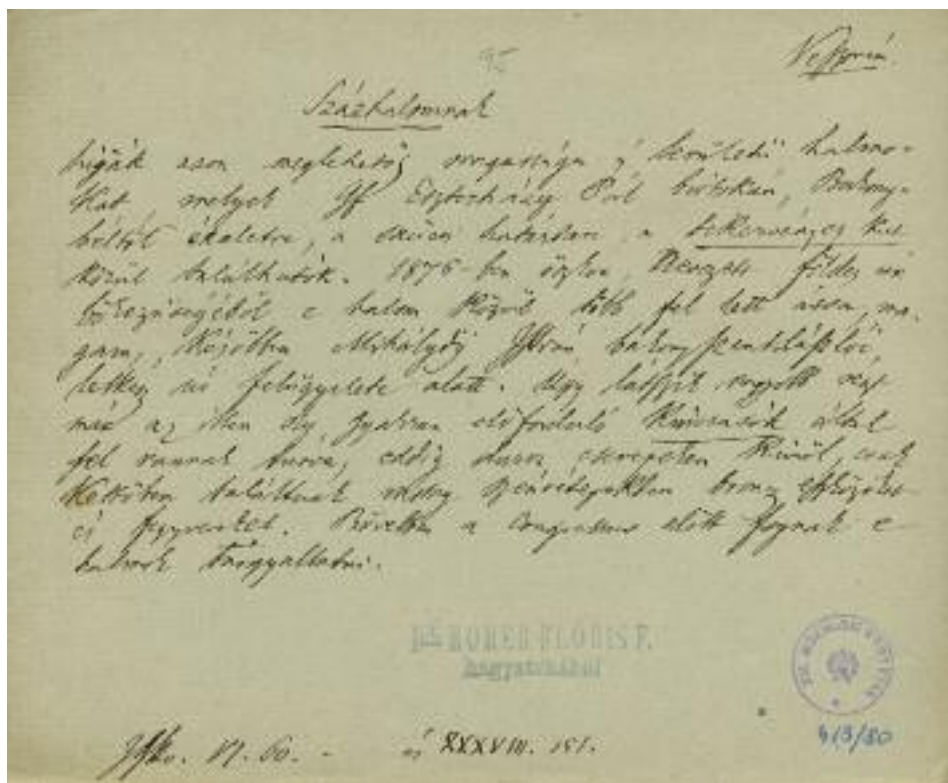 95
Veszprém
Százhalomnak
hiják azon meglehetős magasságu s kerületü halmo-
kat melyek Eszterházy Pál birtokán, Bakony-
béltől északra, a szücsi határban, a tekervényes kut
körül találhatók. 1876-ban őszkor, földes úr
e halom közül több fel lett ásva, ma-
gam, később Mihálydy István bakonyszentlászlói
lelkész úr felügyelete alatt. Ugy látszik nagyobb rész
már az itten oly gyakran előforduló kincsásók által
fel vannak turva, eddig durva cserepeken kivül, csak
kettőben találtunk szénrétegekben bronz
és fegyvereket. Bővebben a congressus előtt fognak e
halmok tárgyaltatni.
DR. ROMER FLÓRIS F.
hagyatékából
Jzk. VI. 60. - és XXXVIII. 151.
413/80